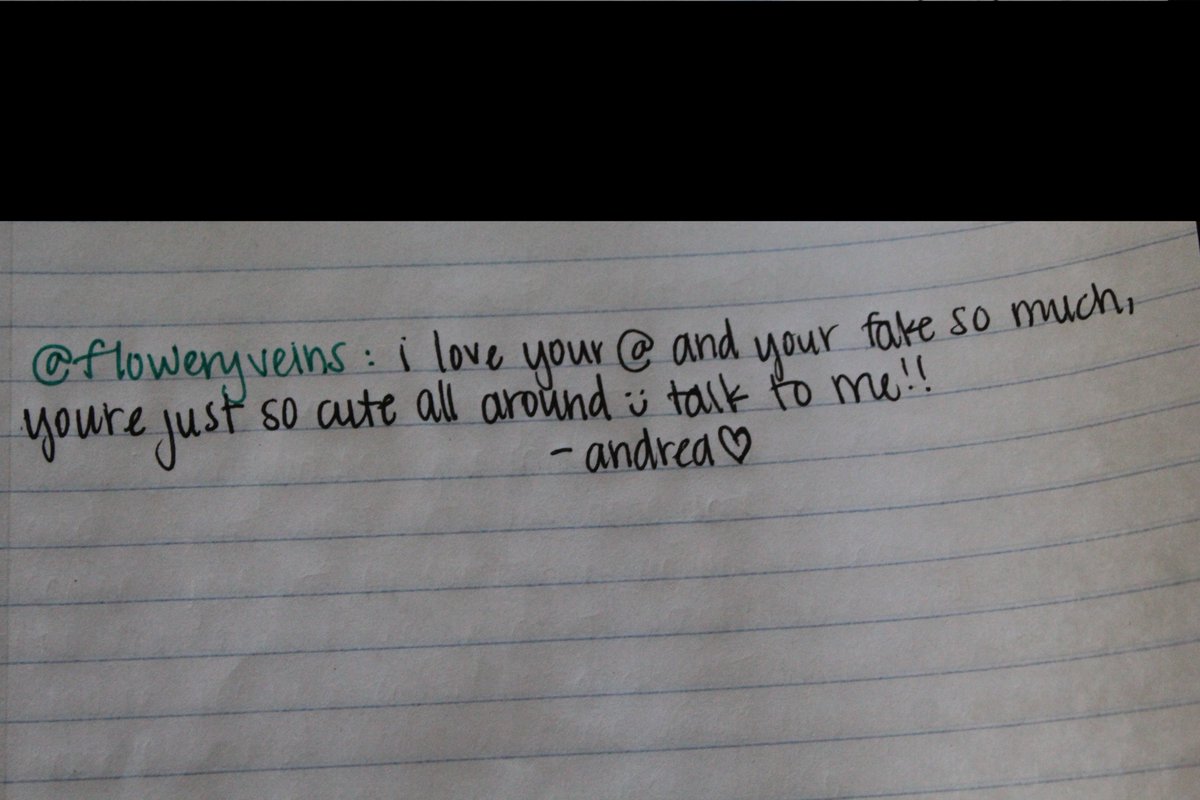 @floweryveins : i love your @ and your fake so much,
youre just so cute all around :) talk to me!!
- andrea♡